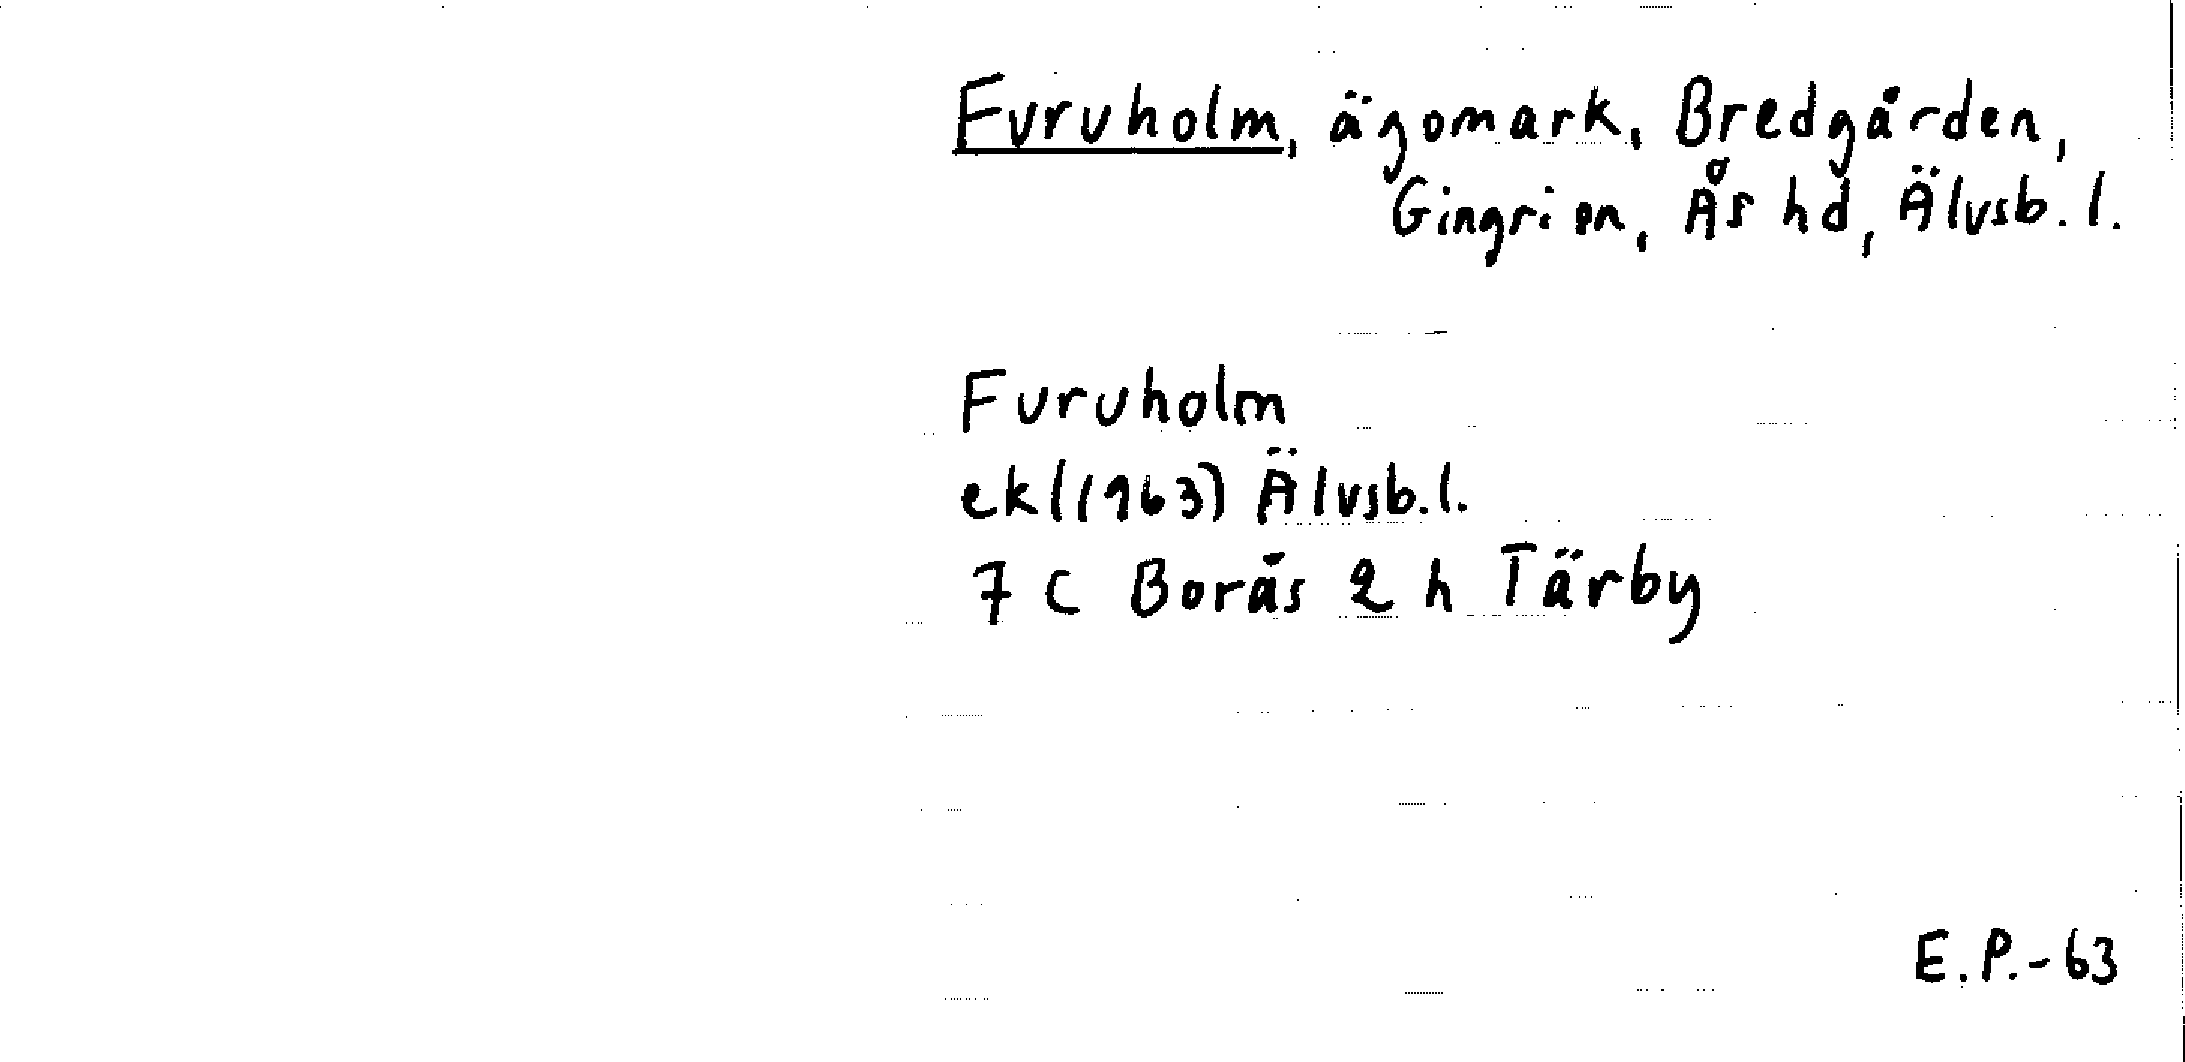 Furuholm, ägomark, Bredgården,
Gingri sn, Ås hd, Älvsb. l.
Furuholm
ek((1963) Älvsb. l.
7 C Borås 2 h Tärby
E.P.-63